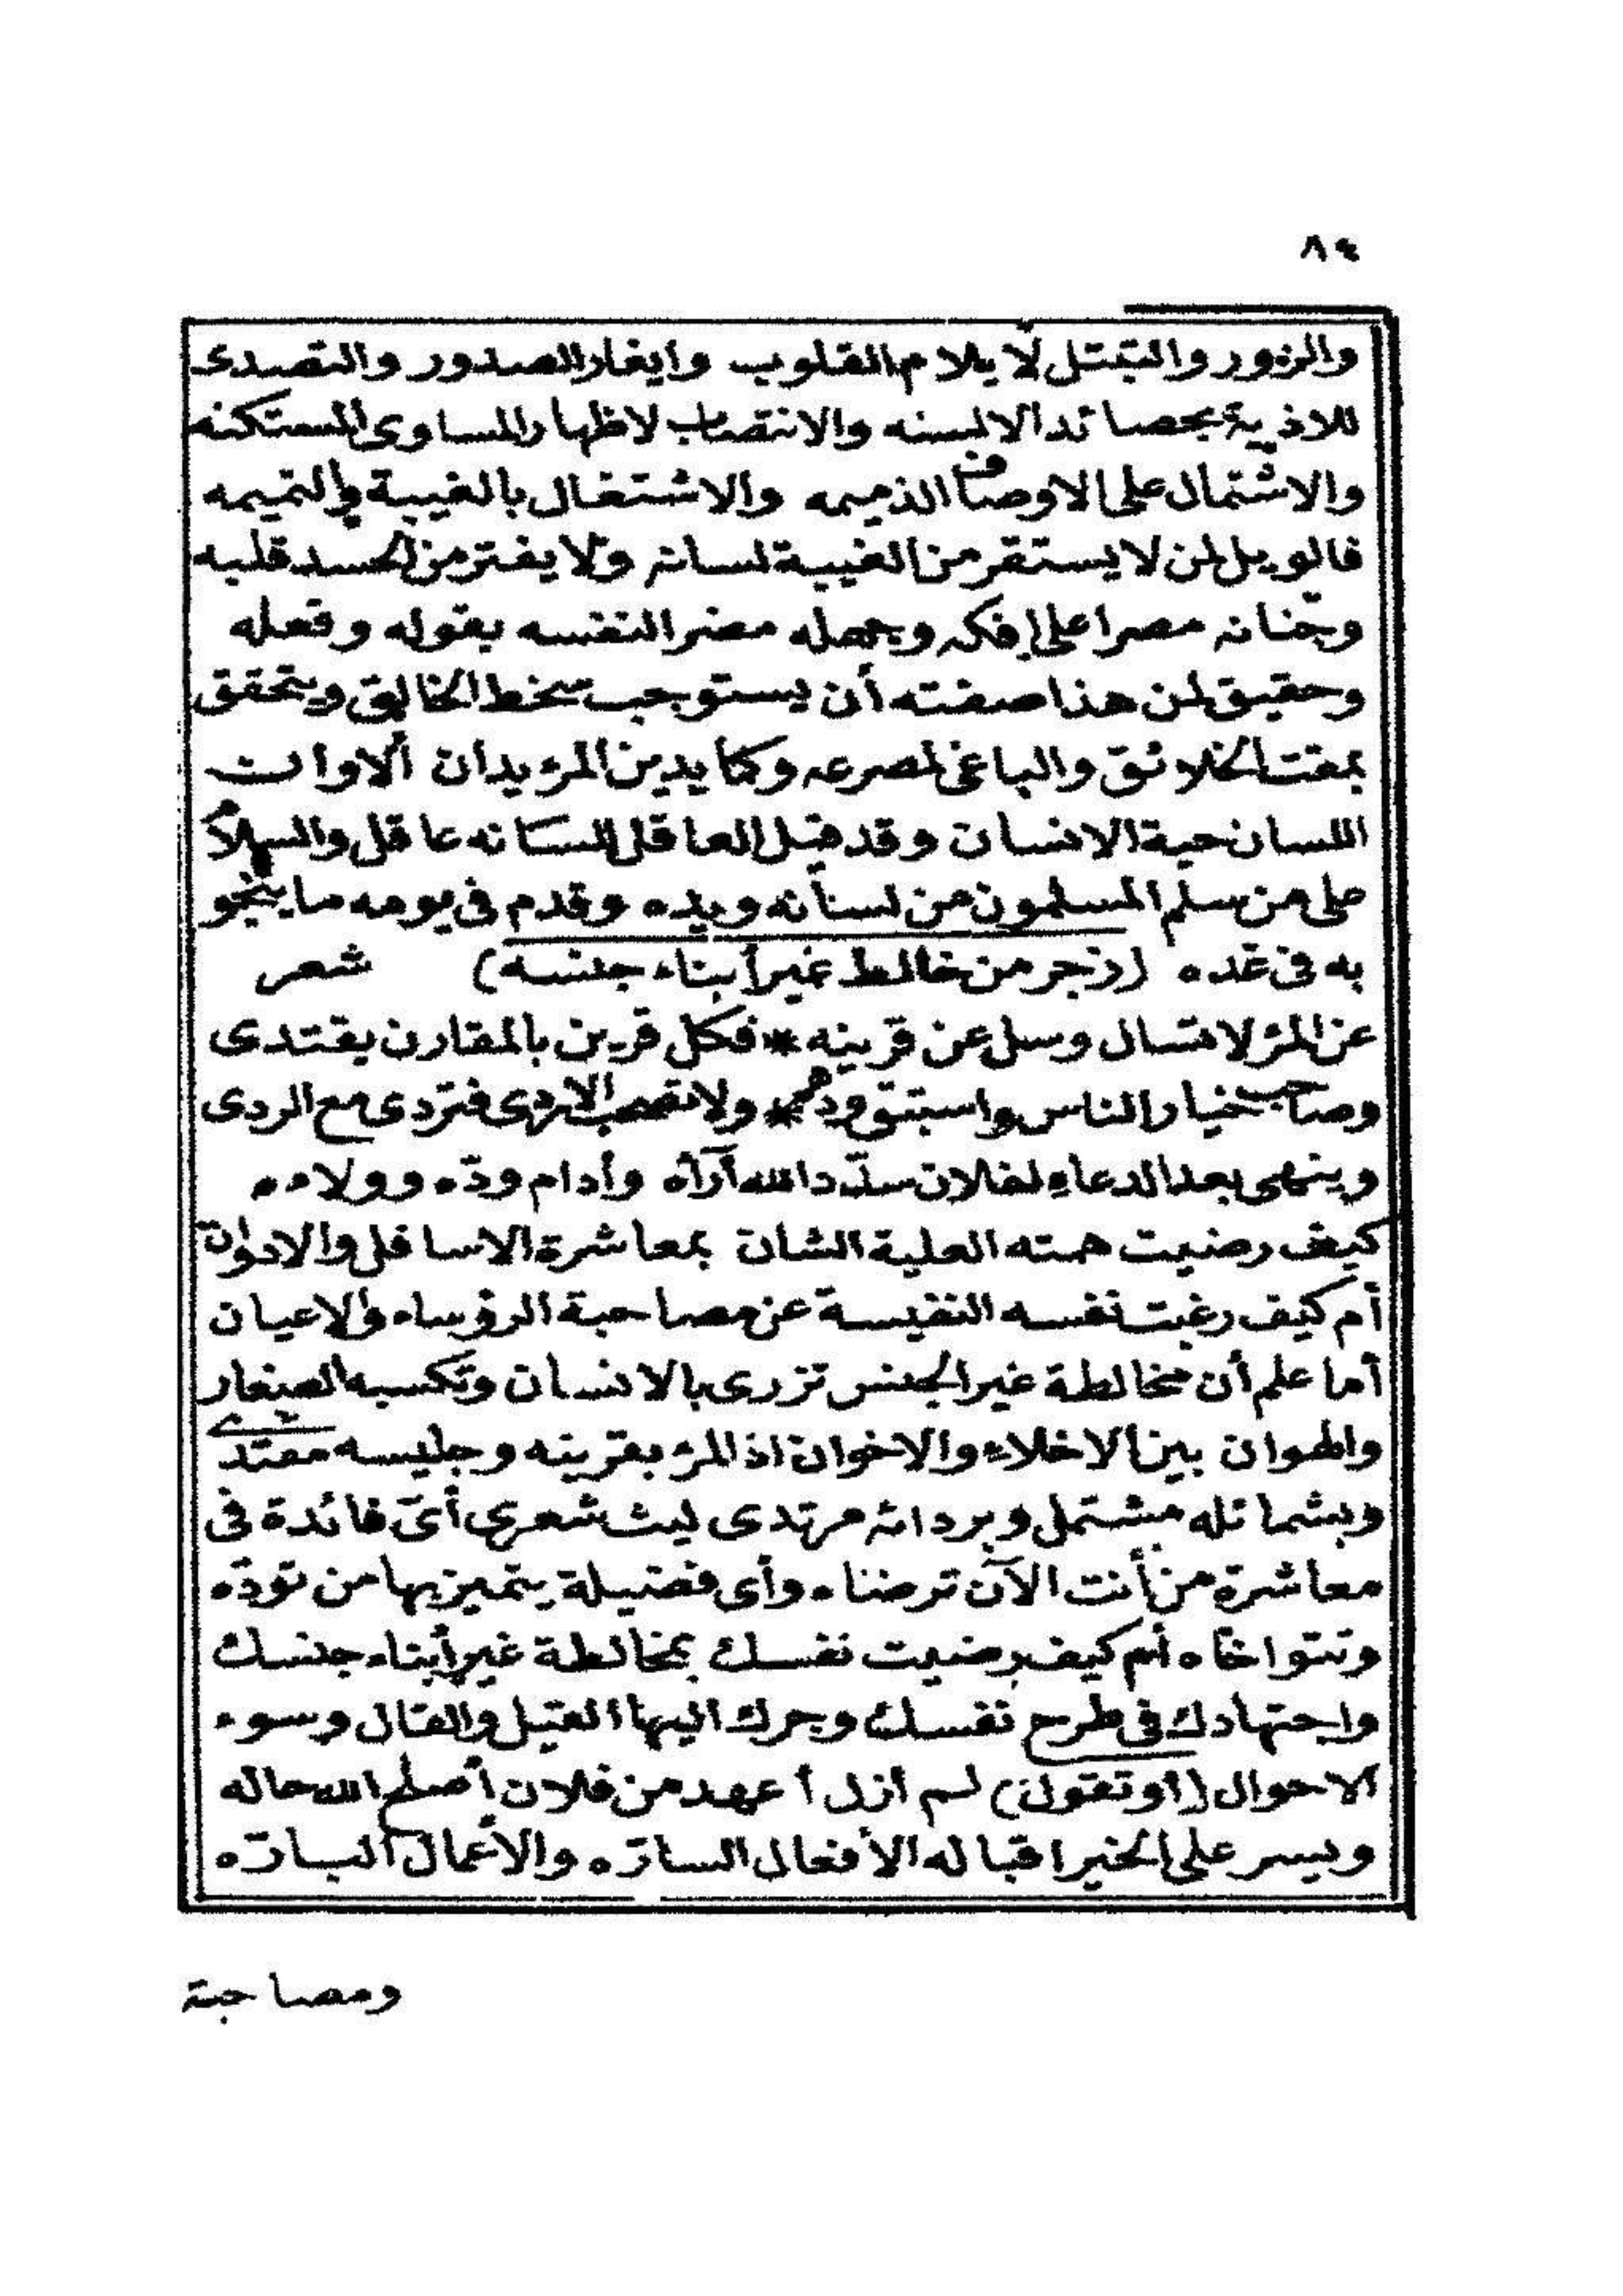 ٨٤
والزور والتبتل لايلام القلوب وايغار الصدور والتصدى
للاذية بحصائد الالسنه والانتصاب لاظهار المساوى المستكنه
والاشتمال على الاوصاف الذميمه والاشتغال بالغيبة والنميمه
فالويل لمن لا يستقر من الغيبة لسانه ولا يفتر من الحسد قلبه
وجنانه مصرا على إفكه وجهله مضر النفسه بقوله وفعله
وحقيق لمن هذا صفته أن يستوجب سخط الخالق ويتحقق
بمقت الخلائق والباغى لمصرعه وكما يدين المرء يدان ألا وان
اللسان حية الانسان وقد قيل العاقل للسانه عاقل والسلام
على من سلم المسلمون من لسانه ويده وقدم فى يومه ما ينجو
به فى غده (زجر من خالط غير أبناء جنسه) شعر
عن المرء لا تسال وسل عن قرينه * فكل قرين بالمقارن يقتدى
وصاحب خيار الناس واستبق ودهم * ولا تصحب الاردى فتردى مع الردى
وينهى بعد الدعاء لفلان سدّد الله آرآه وأدام ودّه وولاءه
كيف رضيت همته العلية الشان بمعاشرة الاسافل والادوان
أم كيف رغبت نفسه النفيسة عن مصاحبة الرؤساء والاعيان
أما علم أن مخالطة غير الجنس تزرى بالانسان وتكسبه الصغار
والهوان بين الاخلاء والاخوان اذ المرء بقرينه وجليسه مقتدى
وبشمائله مشتمل وبردائه مرتدى ليت شعرى أىّ فائدة فى
معاشرة من أنت الآن ترضاه وأى فضيلة يتميز بها من تودّه
وتتواخاه أم كيف رضيت نفسك بمخالطة غير أبناء جنسك
واجتهادك فى طرح نفسك وجرك اليها القيل والقال وسوء
الاحوال (أو تقول) لم أزل أعهد من فلان أصلح الله حاله
ويسر على الخير اقباله الأفعال السارّه والأعمال البارّه
ومصاحبة